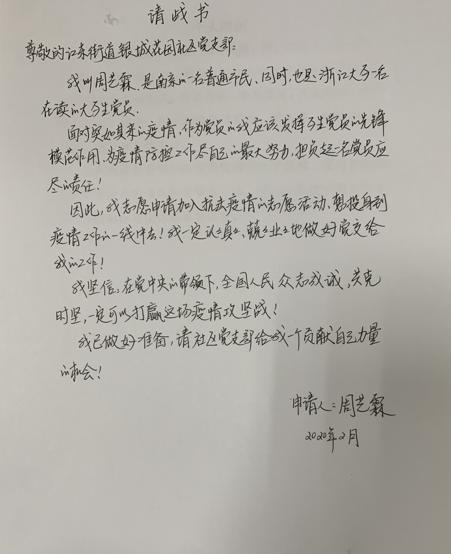 请战书
尊敬的江东街道银城花园社区党支部:
我叫周艺霖,是南京的一名普通市民、同时,也是浙江大学一名
在读的大学生党员.
面对突如其来的疫情,作为党员的我应该发挥学生党员的先锋
模范作用,为疫情防控工作尽自己的最大努力,担负起一名党员应
尽的责任!
因此,我志愿申请加入抗击疫情的志愿活动、想投身到
疫情工作的一线中去!我一定认认真真、兢兢业业地做好党交给
我的工作!
我坚信,在党中央的带领下,全国人民众志成城,共克
时坚,一定可以打赢这场疫情攻坚战!
我已做好准备,请社区党支部给我一个贡献自己力量
的机会!
申请人:周艺霖
2020年2月